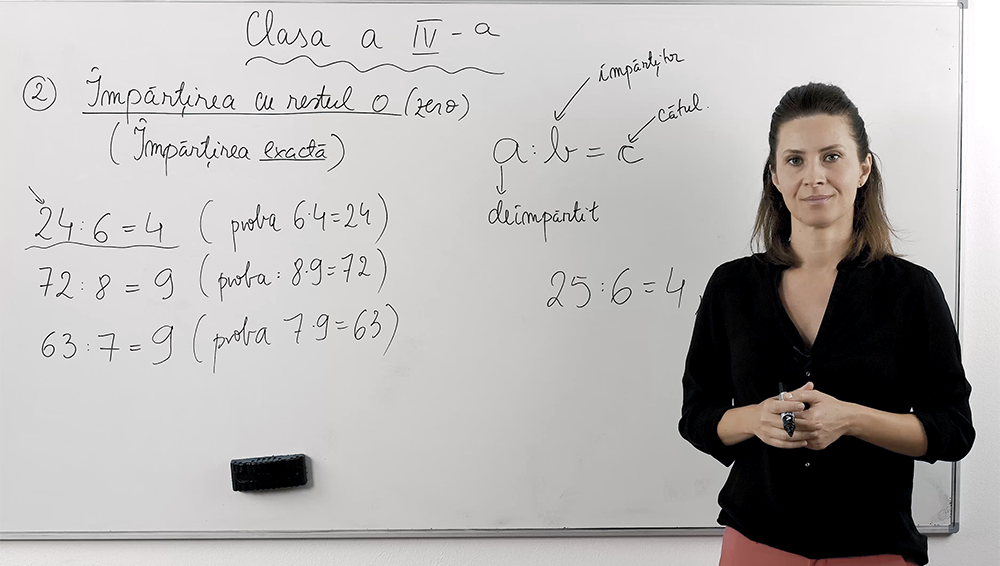 Clasa a IV-a
2 Împărțirea cu restul 0 (zero)
(Împărțirea exactă)
24:6=4 (proba 6·4=24)
72:8=9 (proba: 8·9=72)
63:7=9 (proba 7·9=63)
împărțitor
câtul.
a:b=c
deîmpărtit
25:6=4,